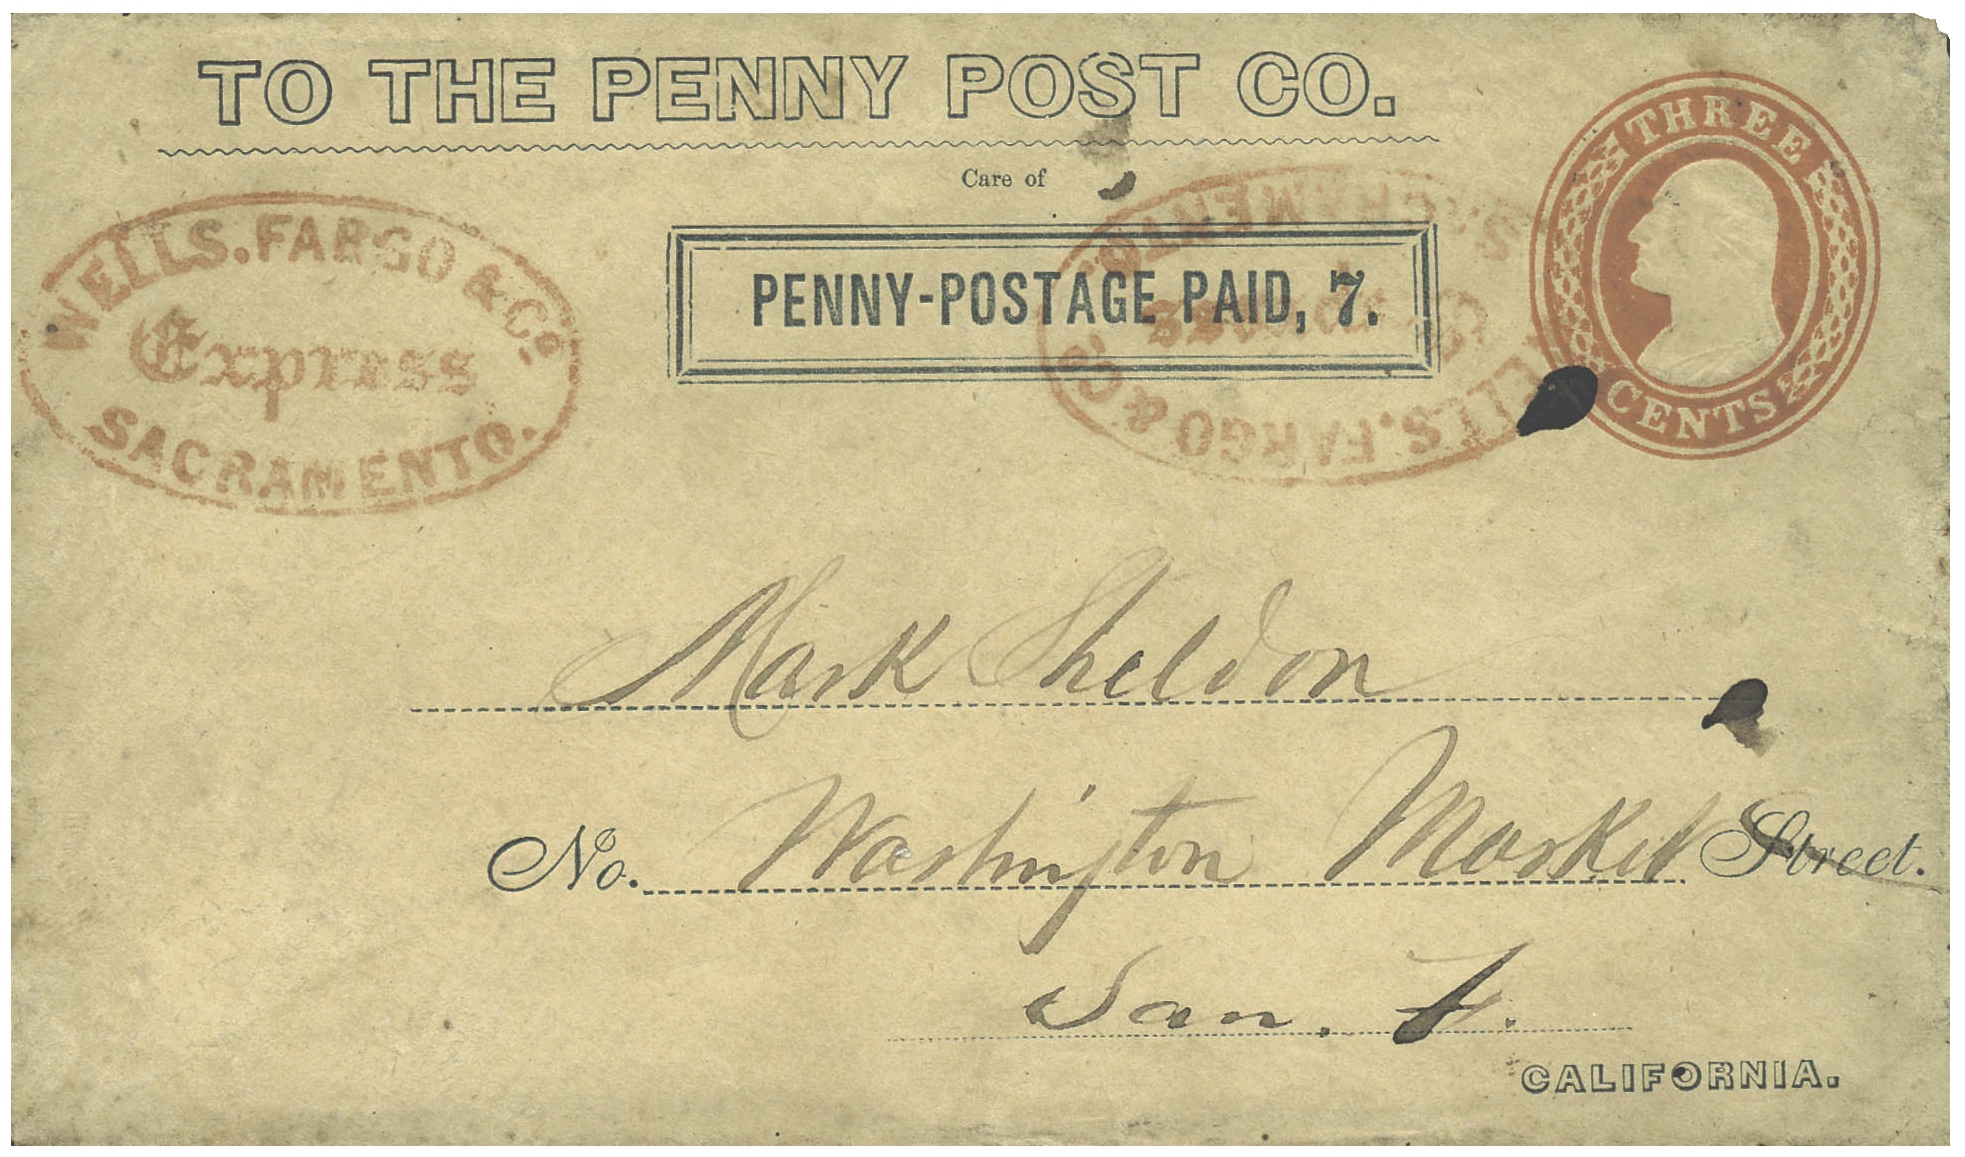 TO THE PENNY POST CO.
Care of
THREE
CENTS
WELLS. FARGO & Co.
Express
SACRAMENTO.
PENNY-POSTAGE PAID, 7.
WELLS. FARGO & Co.
Express
SACRAMENTO.
Mark Sheldon
No. Washington Market Street.
San. F.
CALIFORNIA.